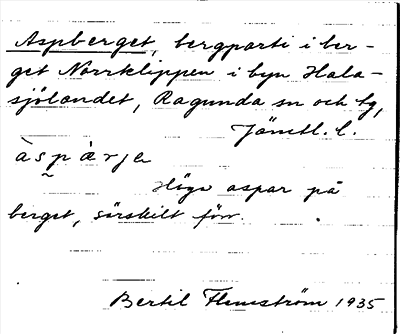 Aspberget, bergparti i ber-
get Norrklippen i byn Hala-
sjölandet, Ragunda sn och tg,
Jämtl. l.
àspàrja
Höga aspar på
berget, särskilt förr.
Bertil Flemström 1935